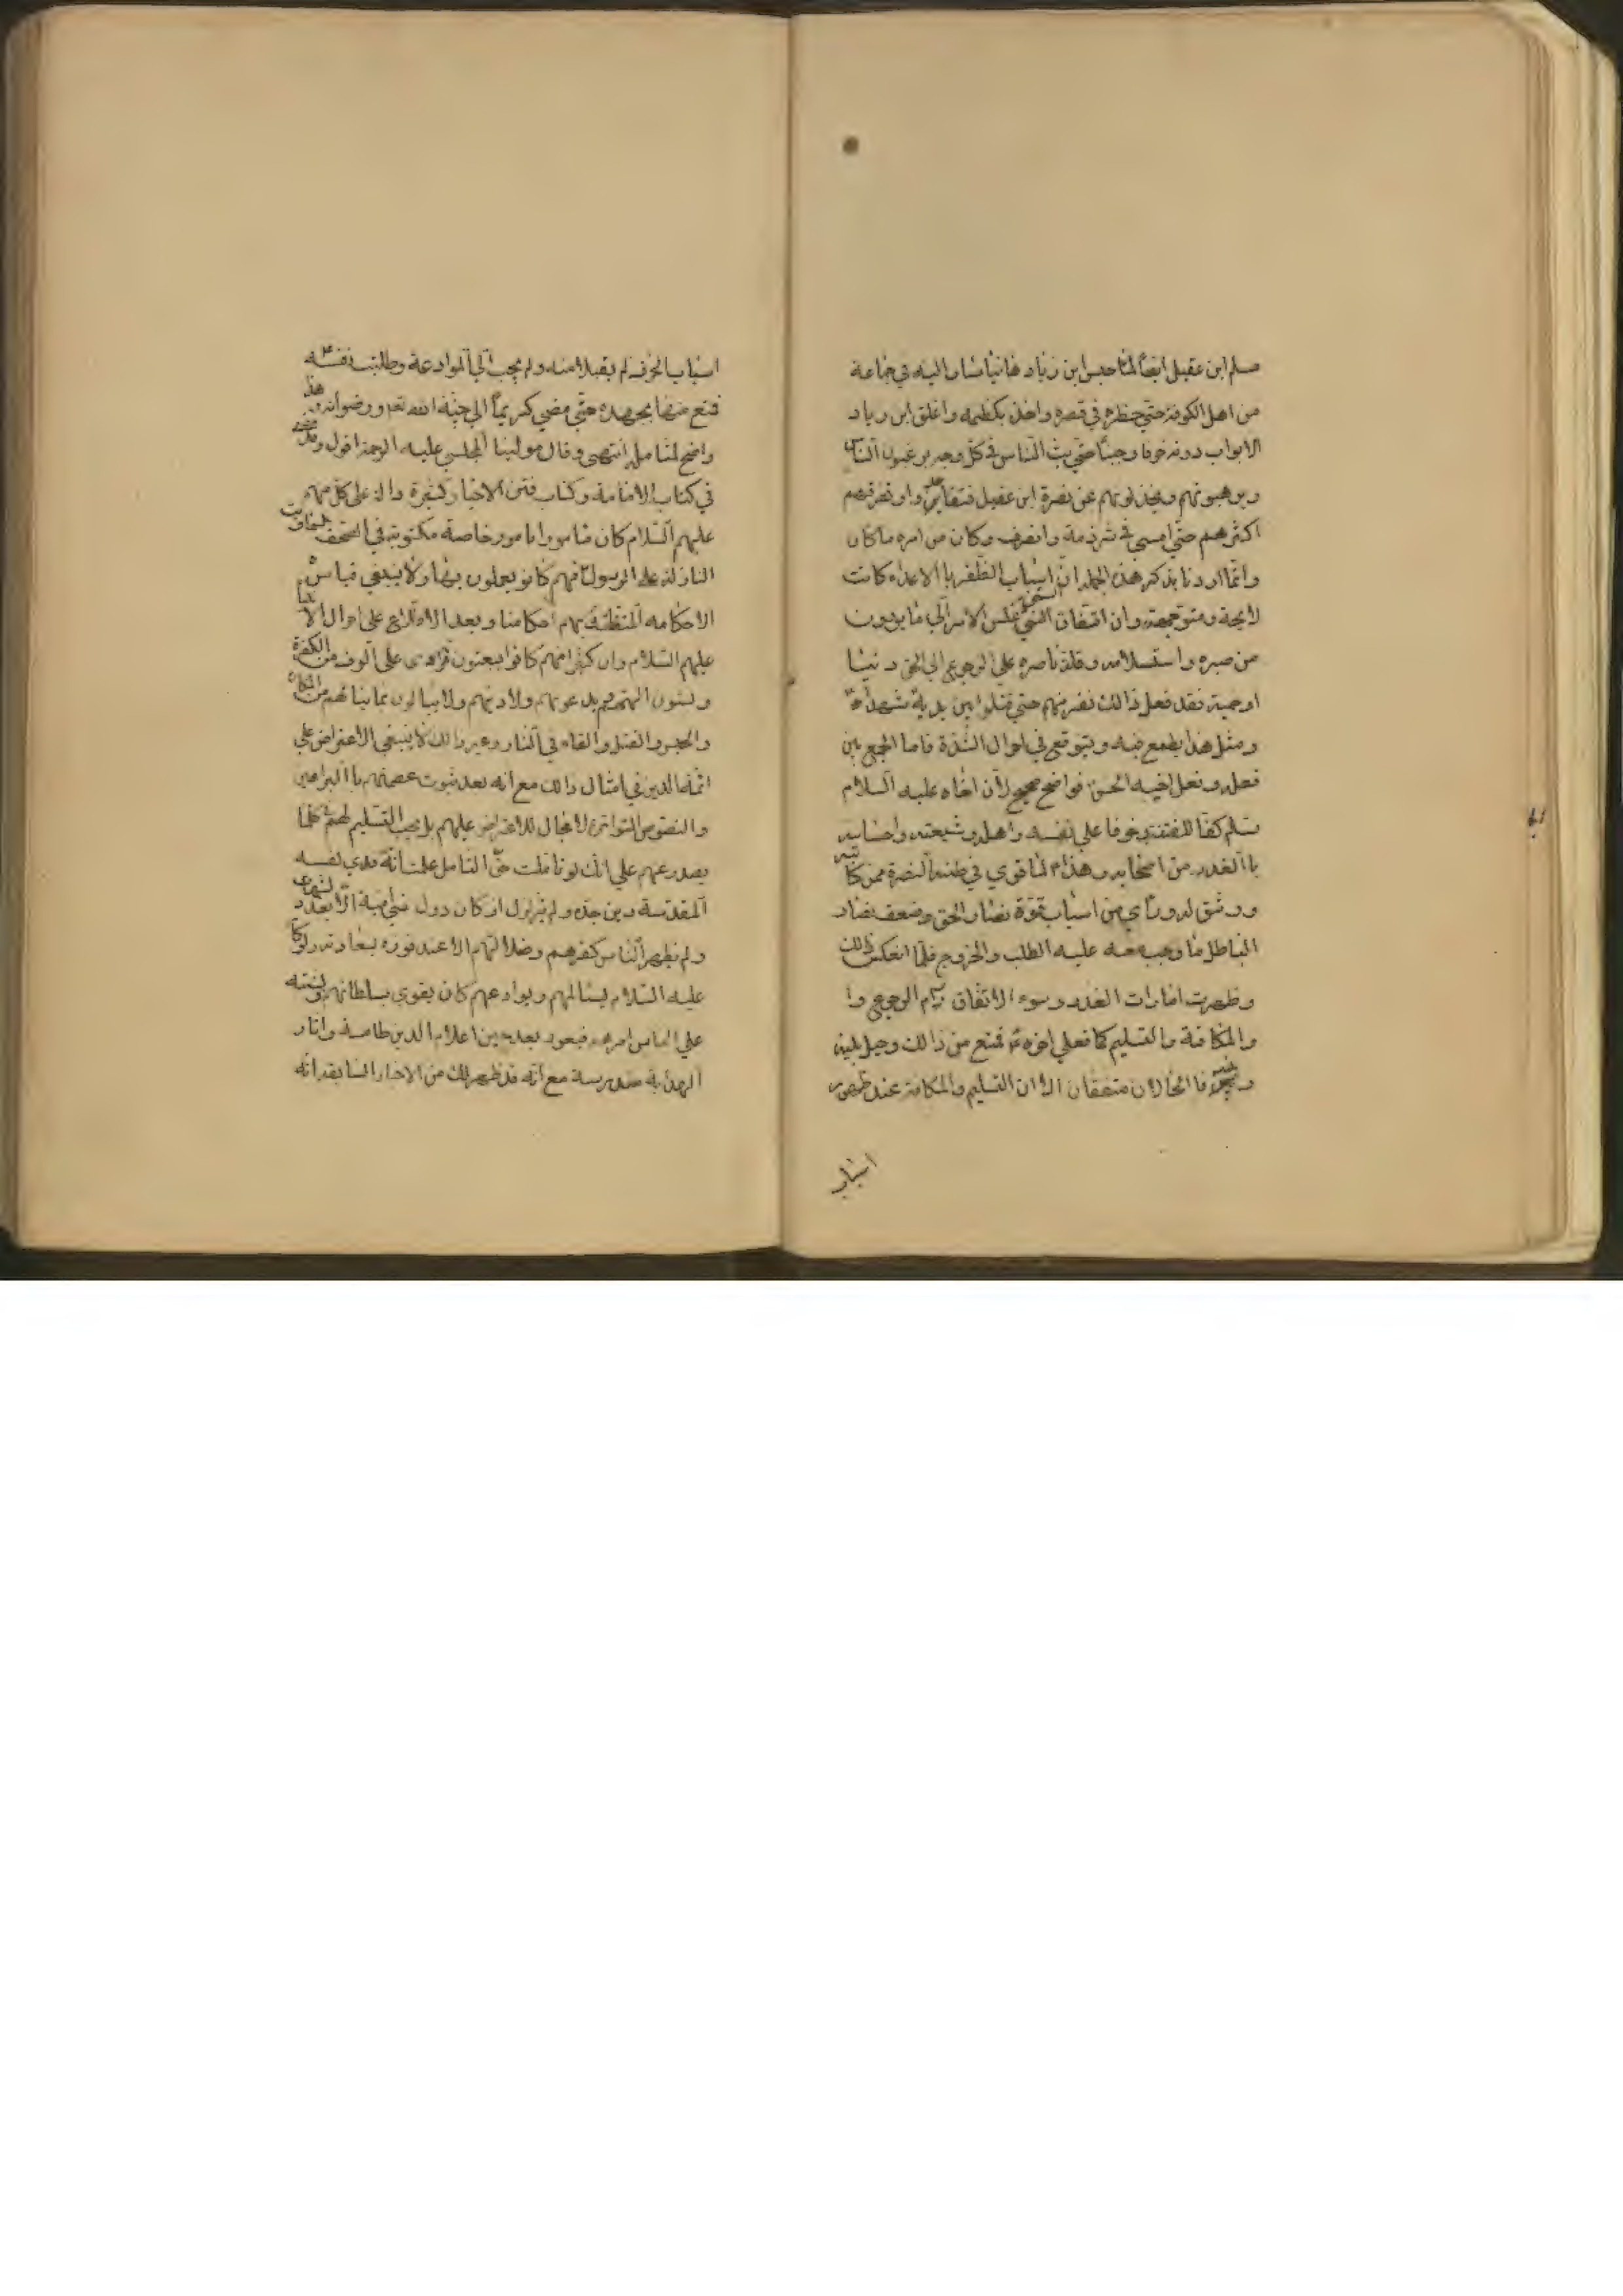 مسلم ابن عقيل ايضاً لمّا حبس ابن زياد هانيا سار اليه في جماعة
من اهل الكوفة حتي حظره في قصره واخذ بكظمه واغلق ابن زياد
الابواب دونه خوفا وجبنا حتي بث الناس في كل وجه يرغبون الناس
ويرهبونهم ويخذلونهم عن نصرة ابن عقيل فتقاعدوا وتفرقهم
اكثرهم حتي امسي في شرذمة وانصرف وكان من امره ما كان
وانما اردنا بذكر هذه الجملة ان اسباب الظفر بالاعداء كانت
لايحة ومتوجهة وان اتفاق السيئ عكس الامر الي ما يروون
من صبره واستسلامه وقلة ناصره علي الرجوع الي الحق دينا
او حمية فقد فعل ذالك نفر منهم حتي قتلوا بين يديه شهداء
ومثل هذا يطمع فيه ويتوقع في احوال الشدة فاما الجمع بين
فعله وفعل اخيه الحسن فواضح صحيح لان اخاه عليه السلام
سلم كفا للفتنة وخوفا علي نفسه واهله وشيعته واحساسه
باالغدر من اصحابه وهذا لما قوي في ظنه النصرة ممن كاتبه
ووثق له وراي من اسباب قوة نصار الحق وضعف نصار
الباطل ما وجب معه عليه الطلب والخروج فلما انعكس ذالك
وظهرت امارات الغدر وسوء الاتفاق رام الرجوع وا
والمكافة والتسليم كما فعل اخوه فمنع من ذالك وحيل بينه
وبينه فالحالان متفقان الا ان التسليم والمكافة عند ظهور
اسباب
اسباب الخوف لم يقبلا منه ولم يجب الي الموادعة وطلبت نفسه
فمنع منها بجهده حتي مضي كريماً الي جنة الله تعم ورضوانه وهذا
واضح لمتامله انتهي وقال مولينا المجلسي عليه الرحمة اقول وقد مضي
في كتاب الامامة وكتاب فتن الاخبار كثيرة دالة علي كل منهم
عليهم السلام كان مامورا بامور خاصة مكتوبة في الصحف السماوية
النازلة علي الرسول فهم كانو يعملون بها ولا ينبغي قياس
الاحكامه المتعلقة بهم احكامنا وبعد الاطلاع علي احوال الانبياء
عليهم السلام وان كثيرا منهم كانوا يبعثون فرادي علي الوف من الكفرة
ويسبون الهتهم ويدعونهم ولا دينهم ولا يبالون بما ينالهم من المكاره
والحبس والقتل والقاء في النار وغير ذالك لا ينبغي الاعتراض علي
ائمة الدين في امثال ذالك مع انه بعد ثبوت عصمتهم باالبراهين
والنصوص المتواترة لا مجال للاعتراض عليهم بل يجب التسليم لهم كلما
يصدر عنهم علي انك لو تاملت حق التامل علمت انه فدي نفسه
المقدسة دين جده ولم يتزلزل اركان دول بني امية الا بعد شهادته
ولم يظهر الناس كفرهم وضلالتهم الا عند فوزه بسعادته ولو كان
عليه السلام يسالمهم ويوادعهم كان يقوي سلطانهم ويشتبه
علي الناس امرهم فيعود بعد حين اعلام الدين طامسة واثار
الهداية مندرسة مع انه قد ظهر لك من الاخبار السابقة انه